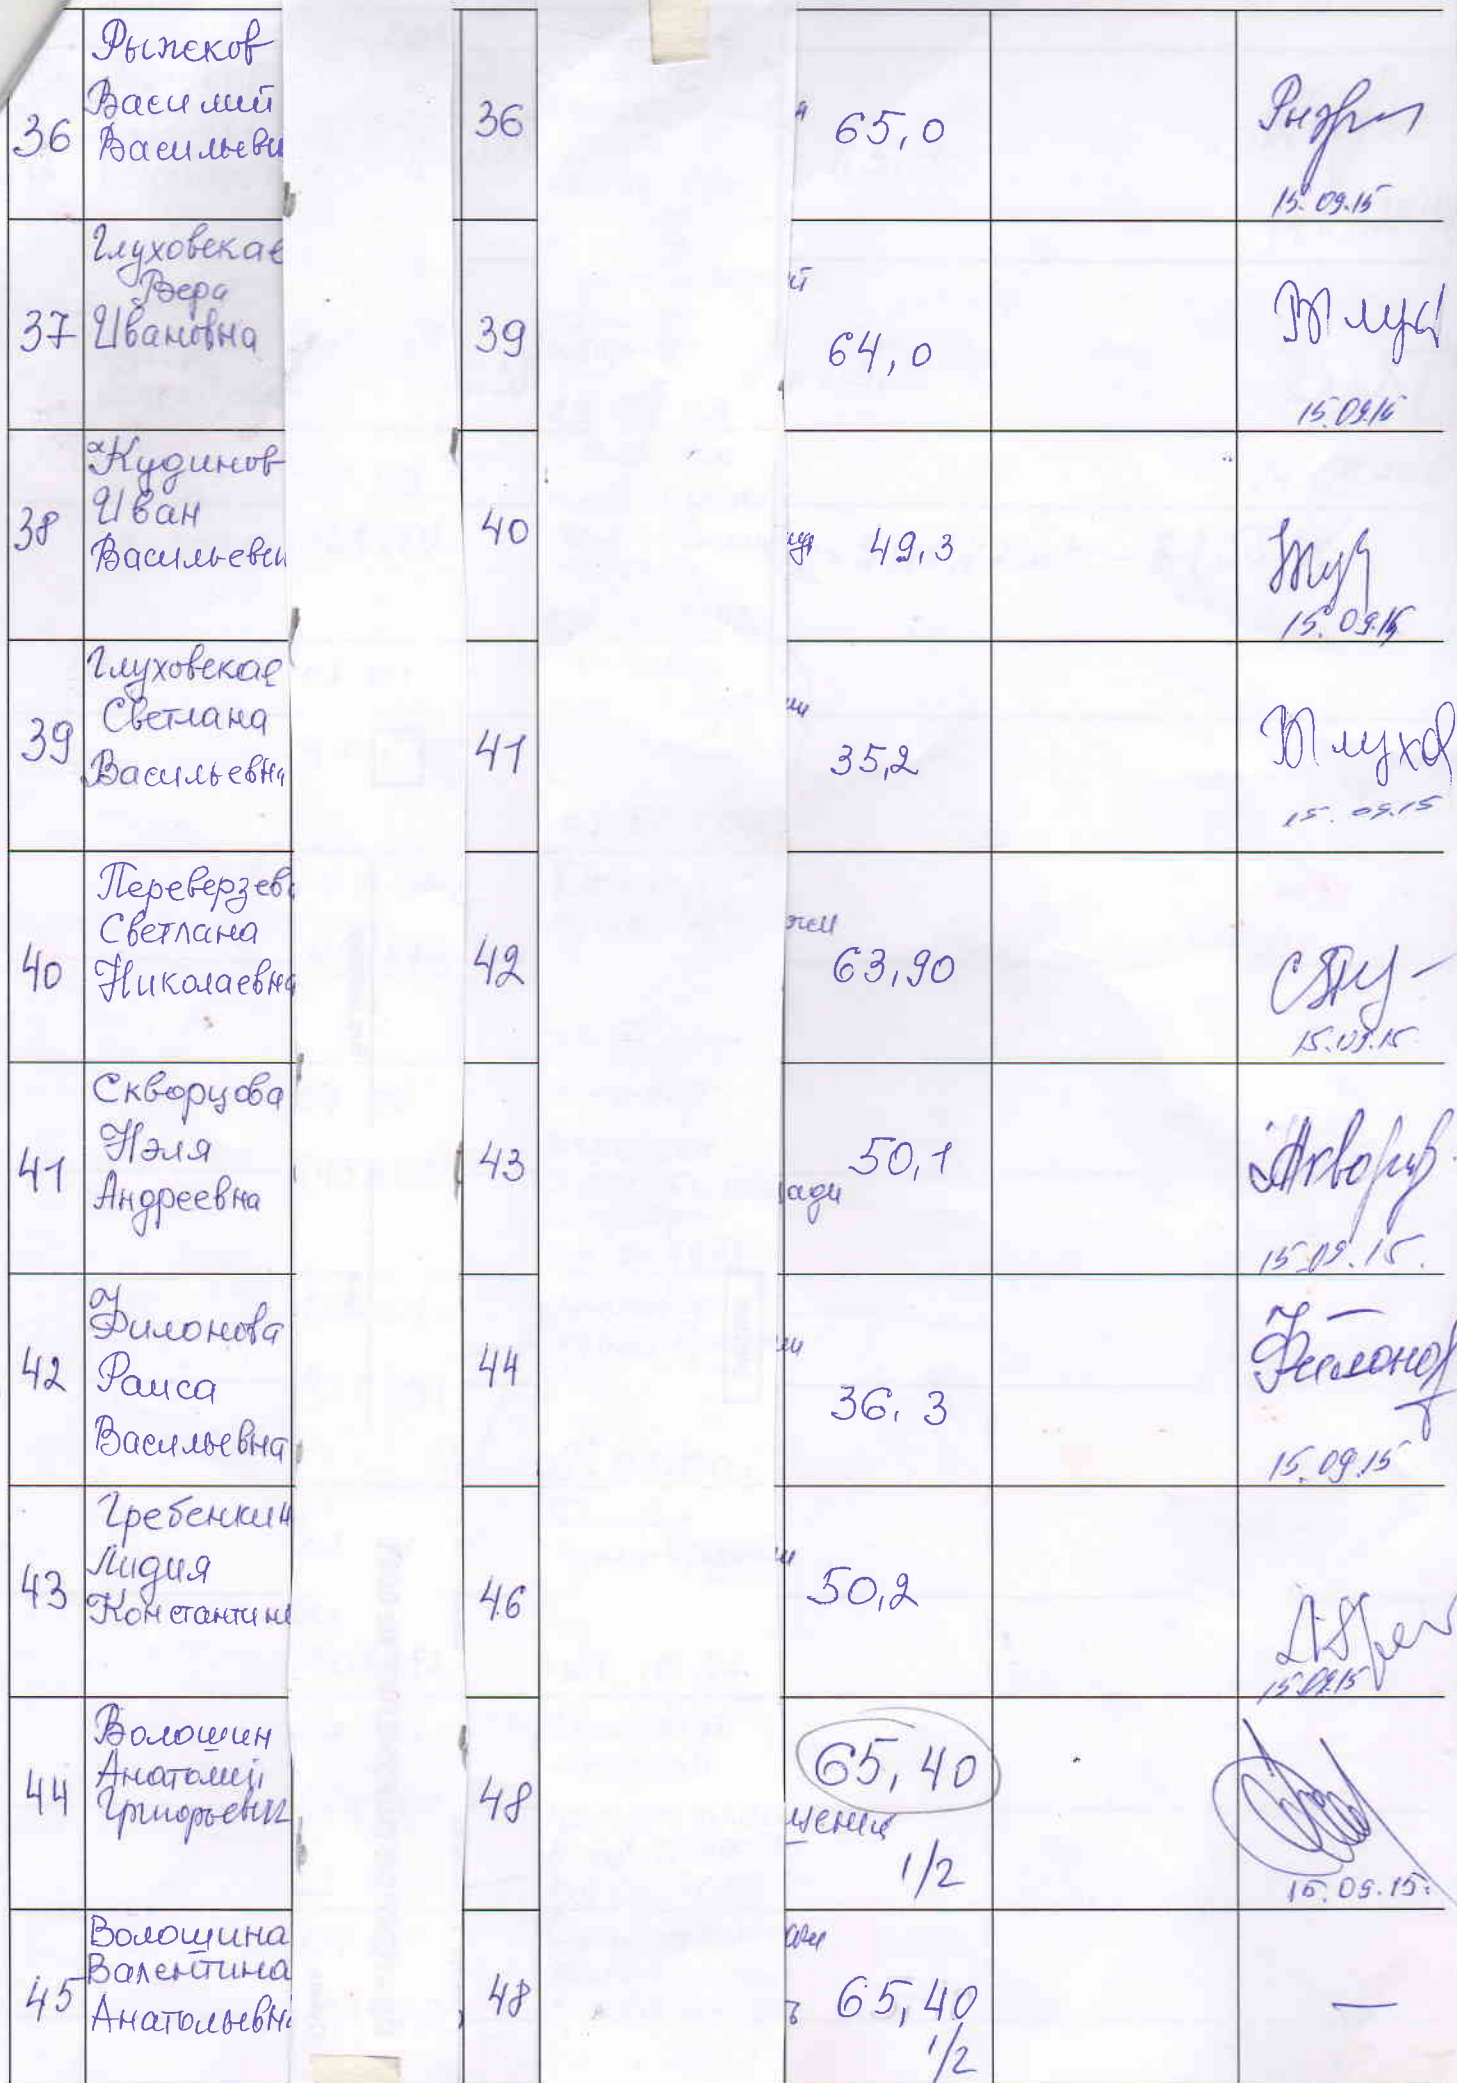 Рыжков
Василий
Васильеви
36
36
65,0
15.09.15
Глуховская
Вера
Ивановна
37
39
64,0
15.09.15
Кудинов
Иван
Васильеви
38
40
49,3
15.09.15
Глуховская
Светлана
Васильевна
39
41
35,2
15.09.15
Переверзев
Светлана
Николаевна
40
42
жей
63,90
15.09.15
Скворцова
Нэля
Андреевна
41
43
50,1
ади
15.09.15.
Филонова
Раиса
Васильевна
42
44
36,3
Филонов
15.09.15
Гребенкин
Лидия
Константин
43
46
50,2
15.09.15
Волошин
Анатолий
Григорьевич
44
48
65,40
щения
1/2
15.09.15.
Волошина
Валентина
Анатольевн
45
48
65,40
1/2
—